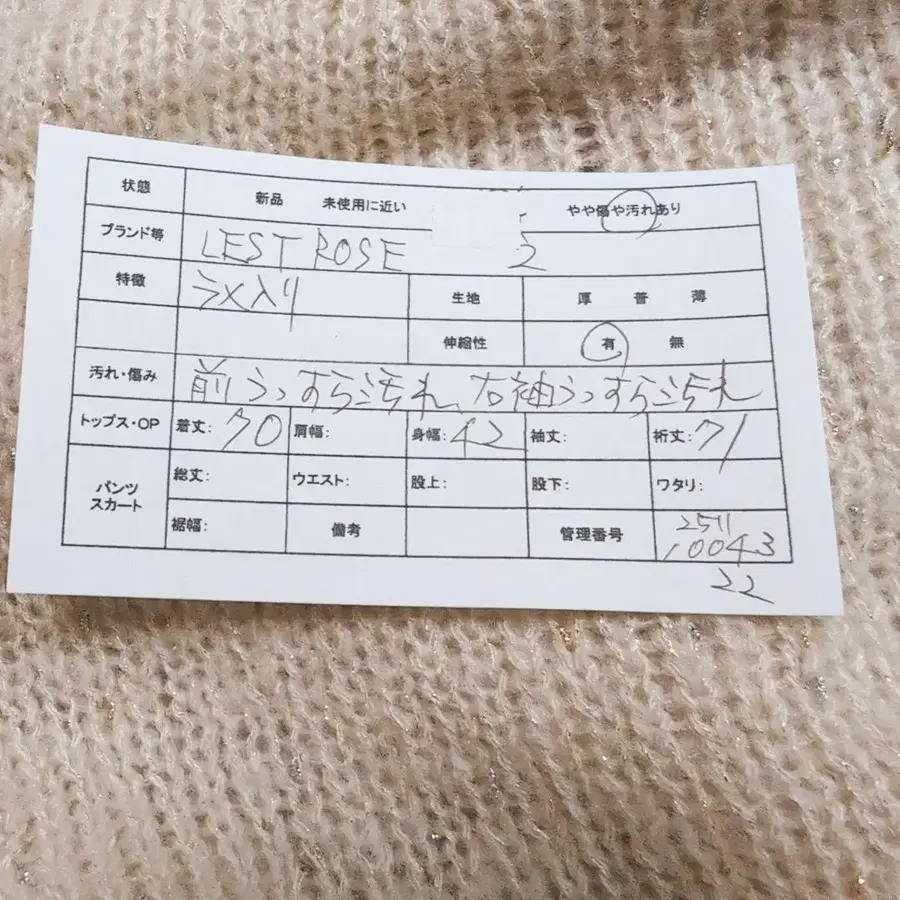 状態 新品 未使用に近い やや傷や汚れあり
ブランド等 LEST ROSE 2
特徴 ラメ入り 生地 厚 普 薄
伸縮性 有 無
汚れ・傷み 前うっすら汚れ、右袖うっすら汚れ
トップス・OP 着丈: 70 肩幅: 身幅: 42 袖丈: 裄丈: 71
パンツ スカート 総丈: ウエスト: 股上: 股下: ワタリ:
裾幅: 備考 管理番号 2511
10043
22